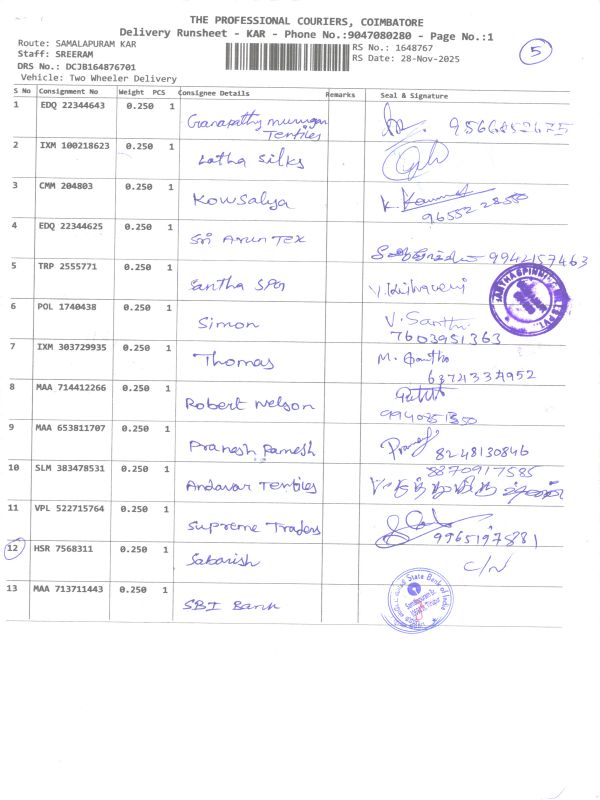 THE PROFESSIONAL COURIERS, COIMBATORE
Delivery Runsheet - KAR - Phone No.:9047080280 - Page No.:1
Route: SAMALAPURAM KAR
RS No.: 1648767
5
Staff: SREERAM
RS Date: 28-Nov-2025
DRS No.: DCJB164876701
Vehicle: Two Wheeler Delivery
S No Consignment No Weight PCS Consignee Details Remarks Seal & Signature
1 EDQ 22344643 0.250 1 Ganapathy murugan
Textiles
2 IXM 100218623 0.250 1 Latha silks
3 CMM 204803 0.250 1 Kowsalya
96552 28550
4 EDQ 22344625 0.250 1 Sri Arun Tex 9942157463
5 TRP 2555771 0.250 1 Santha
6 POL 1740438 0.250 1 Simon V. Santhi
7603951363
7 IXM 303729935 0.250 1 Thomas
6374334952
8 MAA 714412266 0.250 1 Robert Nelson
9 MAA 653811707 0.250 1 Pranesh Ramesh 8248130846
10 SLM 383478531 0.250 1 Andavar Textiles 8870917585
11 VPL 522715764 0.250 1 Supreme Traders
12 HSR 7568311 0.250 1 Sabarish C/N
13 MAA 713711443 0.250 1 SBI Bank
State Bank of India